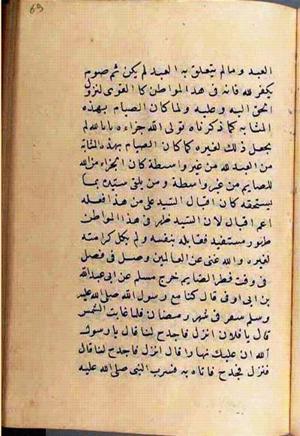 69
العبد وما لم يتعلق به العبد لم يكن ثم صوم
يكفر لله فانه في هذا المواطن كا القوى لنزول
الحق اليه وعليه ولما كان الصيام بهذه
المثابة كما ذكرناه تولى الله جزاءه بانابته لم
يجعل ذلك لغيره كما كان الصيام بهذه المثابة
من العبد لله من غير واسطة كان الجزاء من الله
للصايم من غير واسطة ومن يلق سيده بما
يستحقه كان اقبال السيد على من هذا فعله
اعم اقبال لان السيد ظهر في هذا المواطن
ظهور مستفيد فقابله بنفسه ولم يكل كرامته
لغيره والله غنى عن العالمين وصل في فصل
في وقت فطر الصايم خرج مسلم عن ابى عبدالله
بن ابى اوفى قال كنا مع رسول الله صلى الله عليه
وسلم سفر فى شهر رمضان فلما غابت الشمس
قال يا فلان انزل فاجدح لنا قال يا رسول
الله ان عليك نهارا قال انزل فاجدح لنا قال
فنزل فجدح فاتاه به فشرب النبى صلى الله عليه